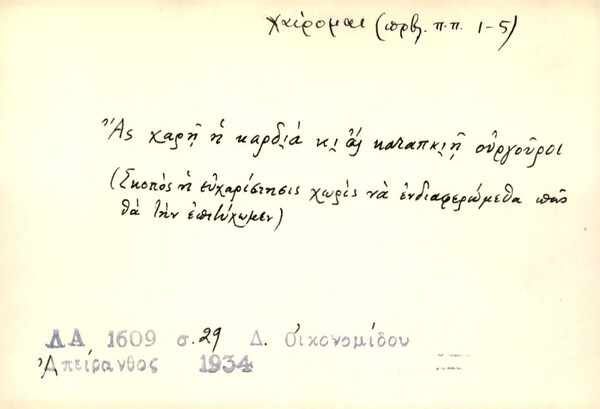 χαίρομαι (πρβ. π.π. 1-5)
Ἂς χαρῇ ἡ καρδιά κι ἂς καταπκιῇ οὐργοῦροι
(Σκοπὸς ἡ εὐχαρίστησις χωρὶς νὰ ἐνδιαφερώμεθα πῶς
θὰ τὴν ἐπιτύχωμεν)
ΛΑ 1609 σ. 29 Δ. Οἰκονομίδου
Ἀπείρανθος 1934